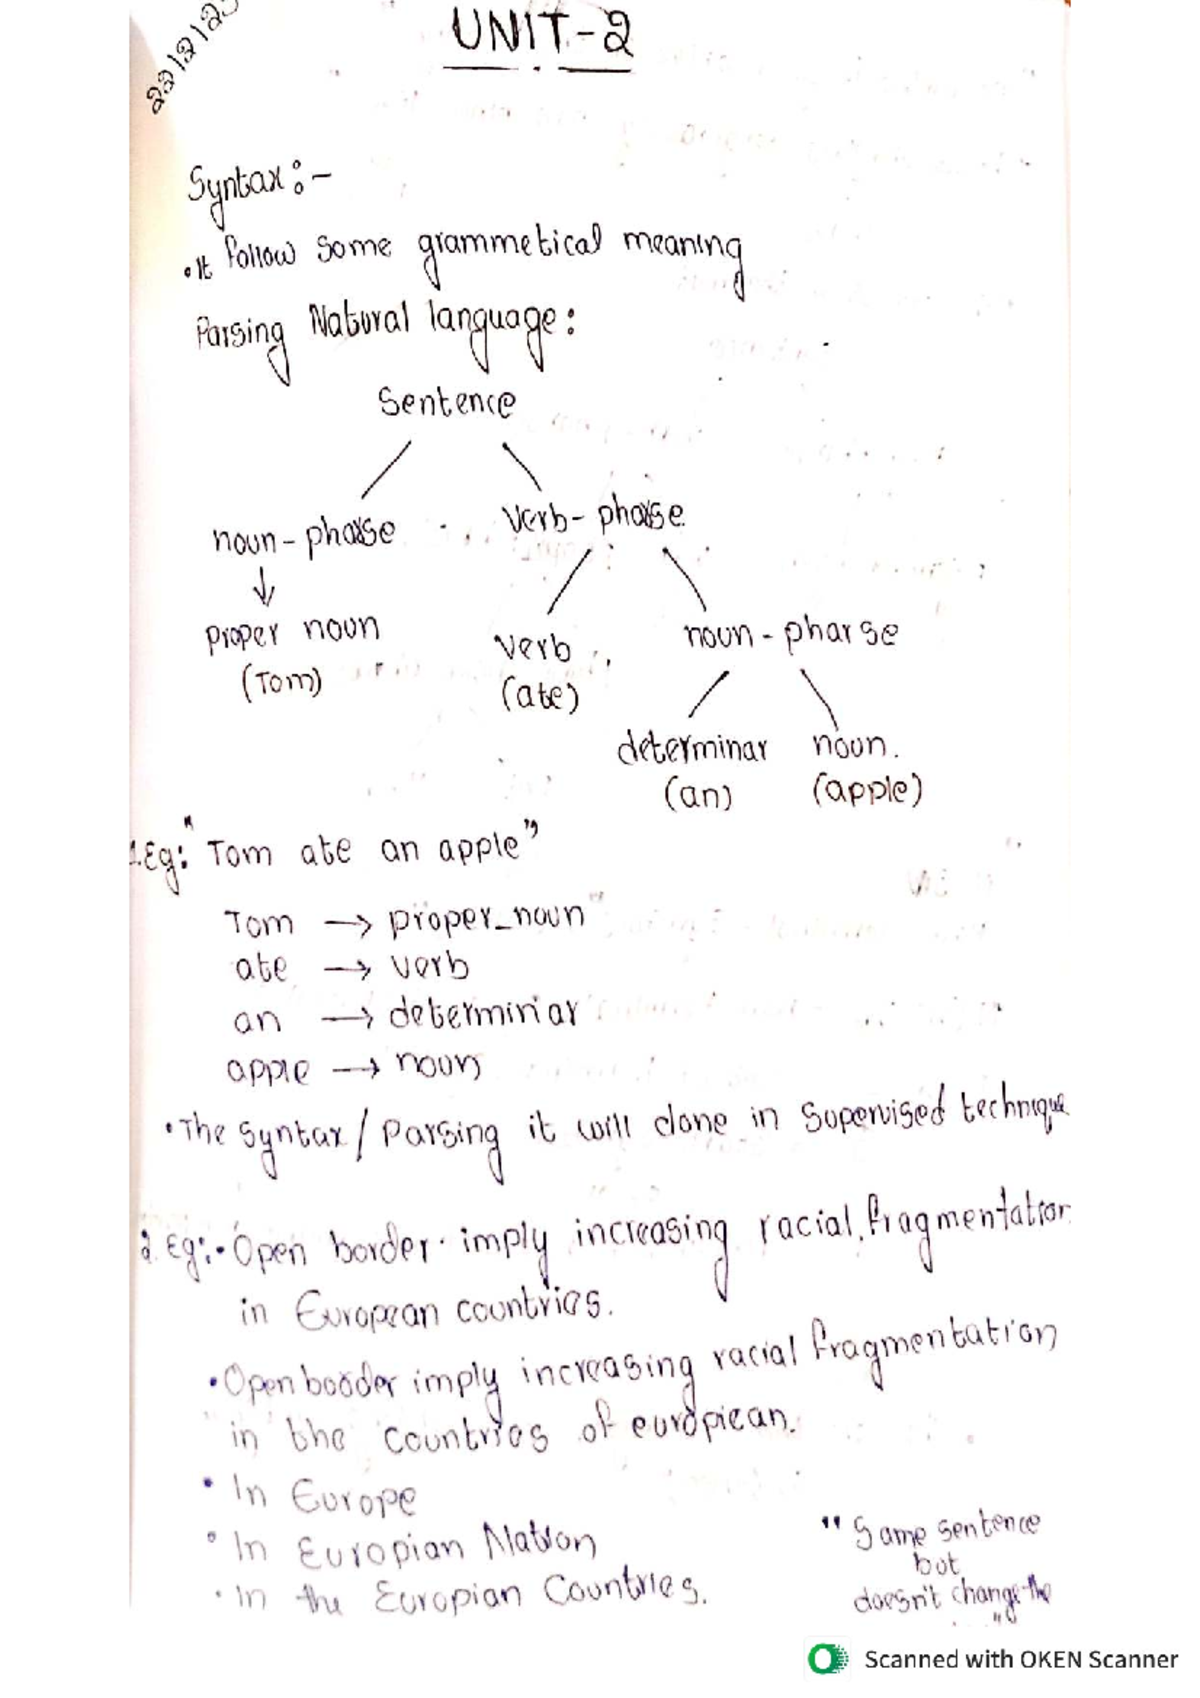 22/2/23
UNIT-2
Syntax:-
• It follow some grammetical meaning
Parsing Natural language:
Sentence
noun-pharse verb-pharse
proper noun verb noun-pharse
(Tom) (ate)
determinar noun.
(an) (apple)
1.Eg: "Tom ate an apple"
Tom → proper_noun
ate → verb
an → determinar
apple → noun
• The syntax / Parsing it will done in Supervised technique
2. Eg:- • Open border imply increasing racial fragmentation
in European countries.
• Open booder imply increasing racial fragmentation
in the countries of europiean.
• In Europe
• In Europian Nation
• In the Europian Countries.
" Same sentence
but
doesn't change the
"
Scanned with OKEN Scanner